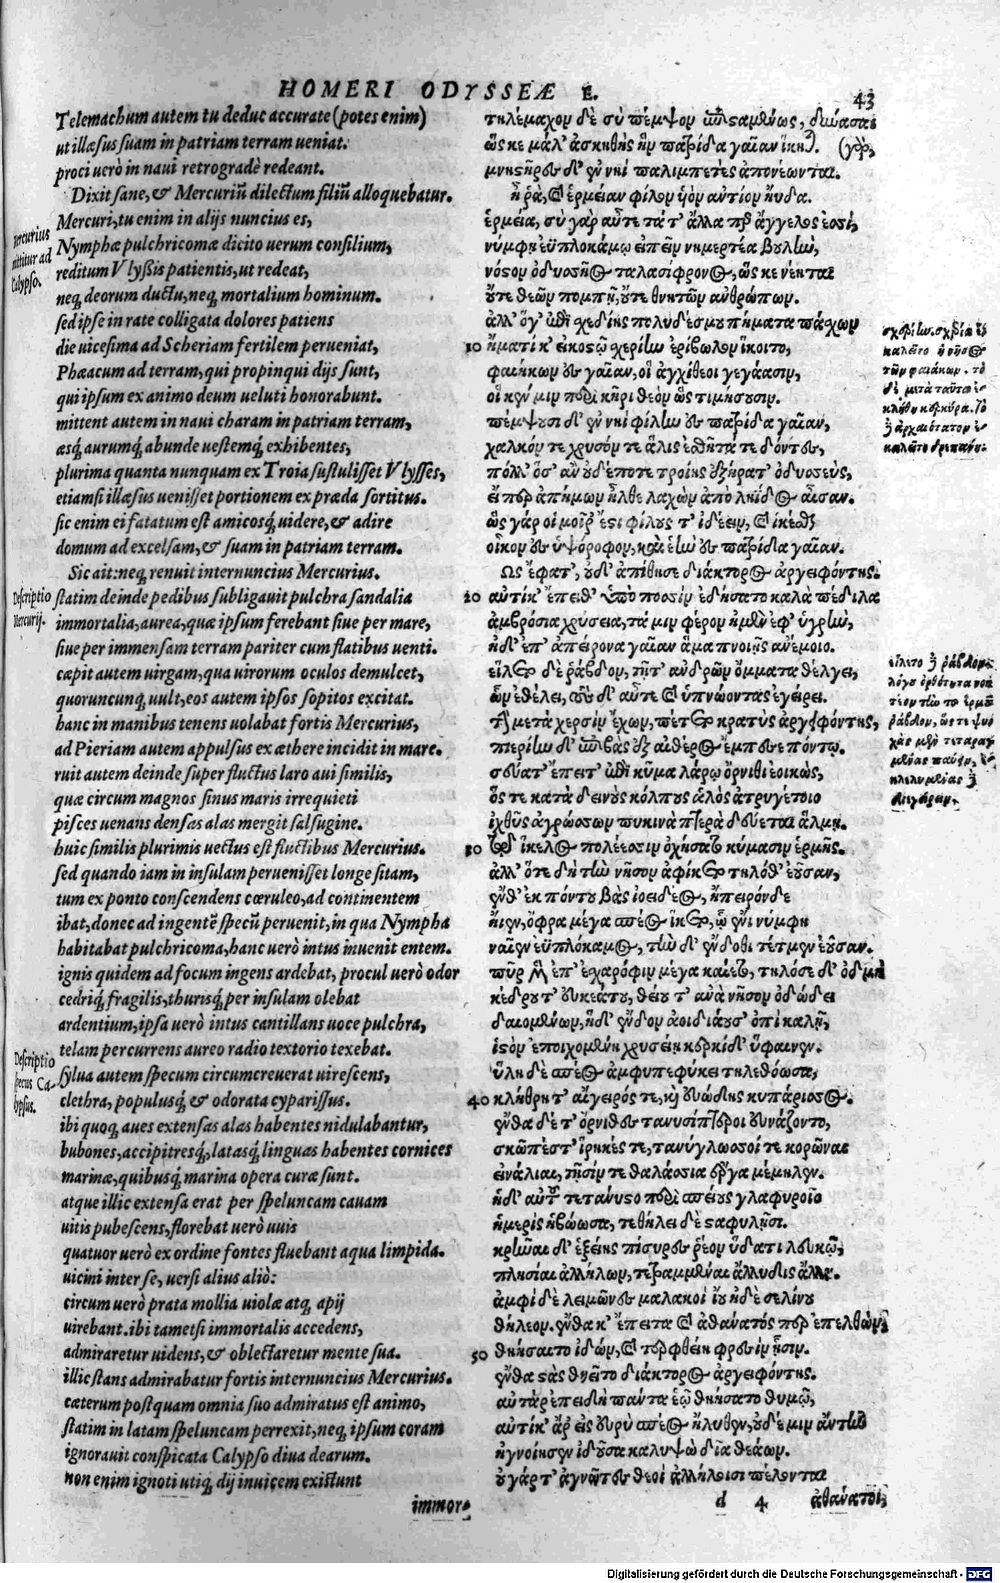 HOMERI ODYSSEÆ E.
43
Telemachum autem tu deduc accurate (potes enim)
ut illæsus suam in patriam terram ueniat.
proci uerò in naui retrogradè redeant.
Dixit sane, & Mercuriũ dilectum filiũ alloquebatur.
Mercuri, tu enim in alijs nuncius es,
Nymphæ pulchricomæ dicito uerum consilium,
reditum Vlyssis patientis, ut redeat,
neq; deorum ductu, neq; mortalium hominum.
sed ipse in rate colligata dolores patiens
die uicesima ad Scheriam fertilem perueniat,
Phæacum ad terram, qui propinqui dijs sunt,
qui ipsum ex animo deum ueluti honorabunt.
mittent autem in naui charam in patriam terram,
æsq; aurumq; abunde uestemq; exhibentes,
plurima quanta nunquam ex Troia sustulisset Vlysses,
etiamsi illæsus uenisset portionem ex præda sortitus.
sic enim ei fatatum est amicosq; uidere, & adire
domum ad excelsam, & suam in patriam terram.
Sic ait: neq; renuit internuncius Mercurius.
statim deinde pedibus subligauit pulchra sandalia
immortalia, aurea, quæ ipsum ferebant siue per mare,
siue per immensam terram pariter cum flatibus uenti.
cæpit autem uirgam, qua uirorum oculos demulcet,
quoruncunq; uult, eos autem ipsos sopitos excitat.
hanc in manibus tenens uolabat fortis Mercurius,
ad Pieriam autem appulsus ex æthere incidit in mare.
ruit autem deinde super fluctus laro aui similis,
quæ circum magnos sinus maris irrequieti
pisces uenans densas alas mergit salsugine.
huic similis plurimis uectus est fluctibus Mercurius.
sed quando iam in insulam peruenisset longe sitam,
tum ex ponto conscendens cæruleo, ad continentem
ibat, donec ad ingentẽ specũ peruenit, in qua Nympha
habitabat pulchricoma, hanc uerò intus inuenit entem.
ignis quidem ad focum ingens ardebat, procul uerò odor
cedriq; fragilis, thurisq; per insulam olebat
ardentium, ipsa uerò intus cantillans uoce pulchra,
telam percurrens aureo radio textorio texebat.
sylua autem specum circumcreuerat uirescens,
clethra, populusq; & odorata cyparissus.
ibi quoq; aues extensas alas habentes nidulabantur,
bubones, accipitresq;, latasq; linguas habentes cornices
marinæ, quibusq; marina opera curæ sunt.
atque illic extensa erat per speluncam cauam
uitis pubescens, florebat uerò uuis
quatuor uerò ex ordine fontes fluebant aqua limpida.
uicini inter se, uersi alius aliò:
circum uerò prata mollia uiolæ atq; apij
uirebant. ibi tametsi immortalis accedens,
admiraretur uidens, & oblectaretur mente sua.
illic stans admirabatur fortis internuncius Mercurius.
cæterum postquam omnia suo admiratus est animo,
statim in latam speluncam perrexit, neq; ipsum coram
ignorauit conspicata Calypso diua dearum.
non enim ignoti utiq; dij inuicem existunt
immor-
Mercurius
mittitur ad
Calypso.
Descriptio
Mercurij.
Descriptio
specus Ca-
lypsus.
τηλέμαχον δὲ σὺ πέμψον ἐπισαμένως, δύνασαι
ὥς κε μάλ' ἀσκηθὴς ἣν πατρίδα γαῖαν ἵκηται. (γὰρ,
μνηστῆρες δ' ἐν νηῒ παλιμπετὲς ἀπονέωνται.
ἦ ῥὰ, καὶ ἑρμείαν φίλον υἱὸν αὐτίον ηὔδα.
ἑρμεία, σὺ γὰρ αὖτε τά τ' ἄλλα περ ἄγγελος ἐσσὶ,
νύμφῃ ἐϋπλοκάμῳ εἰπεῖν νημερτέα βουλὴν,
νόστον ὀδυσσῆος ταλασίφρονος, ὥς κε νέηται
οὔτε θεῶν πομπῇ, οὔτε θνητῶν ἀνθρώπων.
ἀλλ' ὅγ' ἐπὶ σχεδίης πολυδέσμου πήματα πάσχων
10 ἤματί κ' εἰκοστῷ σχερίην ἐρίβωλον ἵκοιτο,
φαιήκων ἐς γαῖαν, οἳ ἀγχίθεοι γεγάασιν,
οἵ κέν μιν περὶ κῆρι θεὸν ὣς τιμήσουσιν.
πέμψουσι δ' ἐν νηῒ φίλην ἐς πατρίδα γαῖαν,
χαλκόν τε χρυσόν τε ἅλις ἐσθῆτά τε δόντες,
πόλλ' ὅσ' ἂν οὐδέποτε τροίης ἐξήρατ' ὀδυσσεὺς,
εἴπερ ἀπήμων ἦλθε λαχὼν ἀπὸ ληίδος αἶσαν.
ὣς γάρ οἱ μοῖρ' ἐστὶ φίλους τ' ἰδέειν, καὶ ἱκέσθαι
οἶκον ἐς ὑψόροφον, καὶ ἑὴν ἐς πατρίδα γαῖαν.
Ὣς ἔφατ', οὐδ' ἀπίθησε διάκτορος ἀργειφόντης.
20 αὐτίκ' ἔπειθ' ὑπὸ ποσσὶν ἐδήσατο καλὰ πέδιλα
ἀμβρόσια χρύσεια, τά μιν φέρον ἠμὲν ἐφ' ὑγρὴν,
ἠδ' ἐπ' ἀπείρονα γαῖαν ἅμα πνοιῇς ἀνέμοιο.
εἵλετο δὲ ῥάβδον, τῇ τ' ἀνδρῶν ὄμματα θέλγει,
ὧν ἐθέλει, τοὺς δ' αὖτε καὶ ὑπνώοντας ἐγείρει.
τὴν μετὰ χερσὶν ἔχων, πέτετο κρατὺς ἀργειφόντης,
πιερίην δ' ἐπιβὰς ἐξ αἰθέρος ἔμπεσε πόντῳ.
σεύατ' ἔπειτ' ἐπὶ κῦμα λάρῳ ὄρνιθι ἐοικὼς,
ὅς τε κατὰ δεινοὺς κόλπους ἁλὸς ἀτρυγέτοιο
ἰχθῦς ἀγρώσσων πυκινὰ πτερὰ δεύεται ἅλμῃ.
30 τῷ ἴκελος πολέεσσιν ὀχήσατο κύμασιν ἑρμῆς.
ἀλλ' ὅτε δὴ τὴν νῆσον ἀφίκετο τηλόθ' ἐοῦσαν,
ἔνθ' ἐκ πόντου βὰς ἰοειδέος, ἤπειρόνδε
ἤιεν, ὄφρα μέγα σπέος ἵκετο, ᾧ ἔνι νύμφη
ναῖεν ἐϋπλόκαμος, τὴν δ' ἔνδοθι τέτμεν ἐοῦσαν.
πῦρ μὲν ἐπ' ἐσχαρόφιν μέγα καίετο, τηλόσε δ' ὀδμὴ
κέδρου τ' εὐκεάτου, θύου τ' ἀνὰ νῆσον ὀδώδει
δαιομένων, ἡ δ' ἔνδον ἀοιδιάουσ' ὀπὶ καλῇ,
ἱστὸν ἐποιχομένη χρυσείῃ κερκίδ' ὕφαινεν.
ὕλη δὲ σπέος ἀμφιπεφύκει τηλεθόωσα,
40 κλήθρη τ' αἴγειρός τε, καὶ εὐώδης κυπάρισσος.
ἔνθα δέ τ' ὄρνιθες τανυσίπτεροι εὐνάζοντο,
σκῶπές τ' ἴρηκές τε, τανύγλωσσοί τε κορῶναι
εἰνάλιαι, τῇσίν τε θαλάσσια ἔργα μέμηλεν.
ἠδ' αὐτοῦ τετάνυστο περὶ σπείους γλαφυροῖο
ἡμερὶς ἡβώωσα, τεθήλει δὲ σταφυλῇσι.
κρῆναι δ' ἑξείης πίσυρες ῥέον ὕδατι λευκῷ,
πλησίαι ἀλλήλων, τετραμμέναι ἄλλυδις ἄλλη.
ἀμφὶ δὲ λειμῶνες μαλακοὶ ἴου ἠδὲ σελίνου
θήλεον. ἔνθα κ' ἔπειτα καὶ ἀθάνατός περ ἐπελθὼν
50 θηήσαιτο ἰδὼν, καὶ τερφθείη φρεσὶν ᾗσιν.
ἔνθα στὰς θηεῖτο διάκτορος ἀργειφόντης.
αὐτὰρ ἐπειδὴ πάντα ἑῷ θηήσατο θυμῷ,
αὐτίκ' ἄρ' εἰς εὐρὺ σπέος ἤλυθεν, οὐδέ μιν ἄντην
ἠγνοίησεν ἰδοῦσα καλυψὼ δῖα θεάων.
οὐ γάρ τ' ἀγνῶτες θεοὶ ἀλλήλοισι πέλονται
d 4 ἀθάνατοι,
καλεῖτο ἡ νῆσος
τῶν φαιάκων. τὸ
δὲ μετὰ ταῦτα ἐ
κλήθη κερκύρα. τὸ
ἀρχαιότατον ἐ
καλεῖτο δρεπάνη.
Digitalisierung gefördert durch die Deutsche Forschungsgemeinschaft - DFG